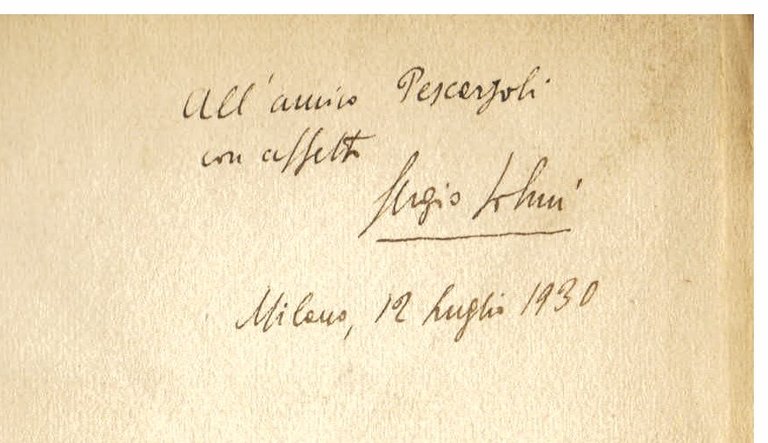 All'amico Pescarzoli
con affetto
Sergio Solmi
Milano, 12 luglio 1930